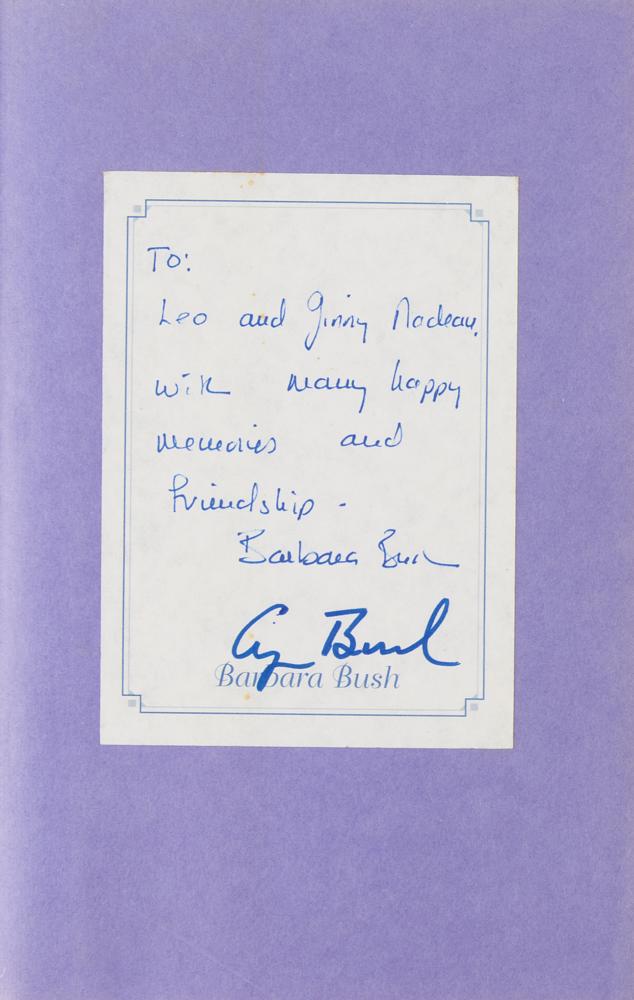 To:
Leo and Ginny Nadeau,
with many happy
memories and
friendship -
Barbara Bush
Bush
Barbara Bush